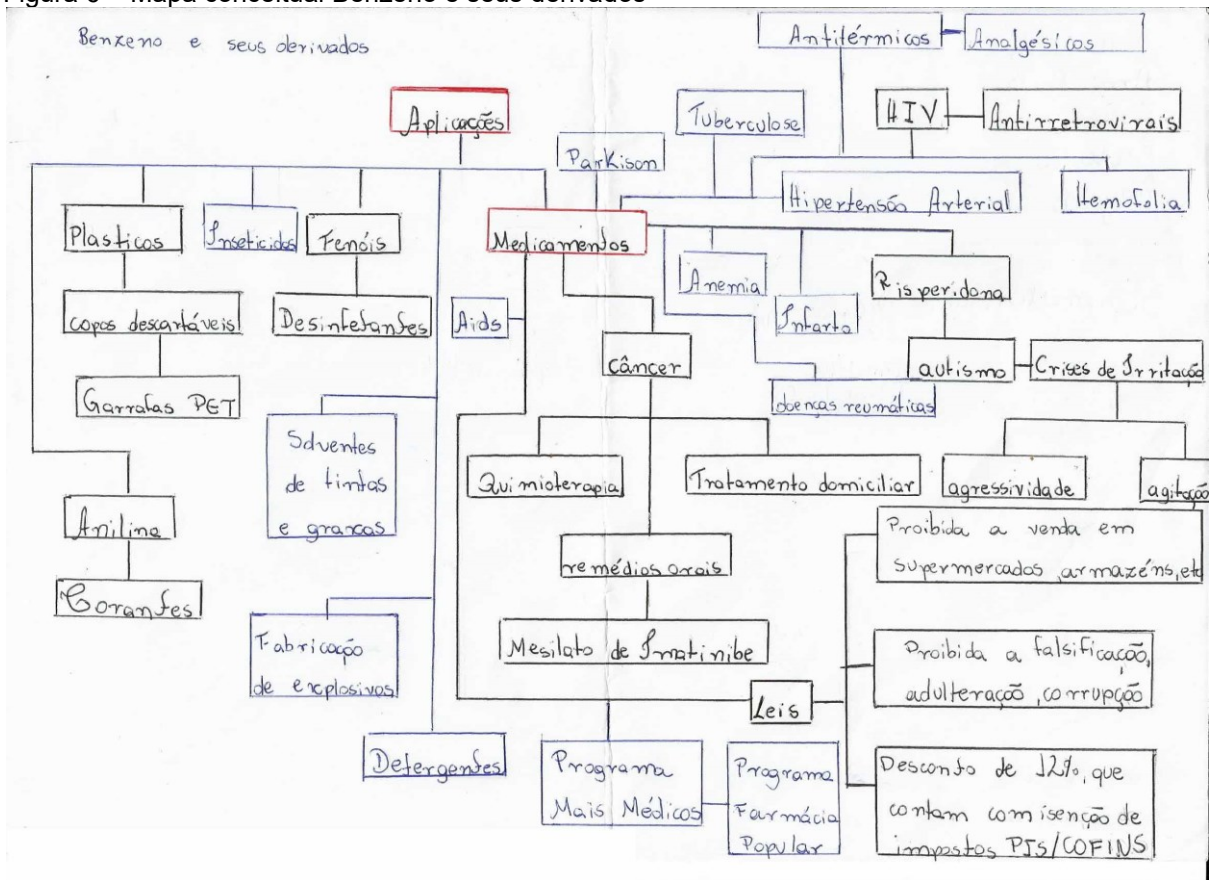 Figura 6 – Mapa conceitual Benzeno e seus derivados
Benzeno e seus derivados
Antitérmicos
Analgésicos
Aplicações
Tuberculose
HIV
Antirretrovirais
Parkison
Hipertensão Arterial
Hemofolia
Plasticos
Inseticidas
Fenóis
Medicamentos
Anemia
Risperidona
Infarto
copos descartáveis
Desinfetantes
Aids
câncer
autismo
Crises de Irritação
Garrafas PET
doenças reumáticas
Solventes
de tintas
e graxas
Quimioterapia
Tratamento domiciliar
agressividade
agitação
Anilina
Corantes
remédios orais
Proibida a venda em
supermercados, armazéns, etc
Fabricação
de explosivos
Mesilato de Imatinibe
Proibida a falsificação,
adulteração, corrupção
Leis
Detergentes
Programa
Mais Médicos
Programa
Farmácia
Popular
Desconto de 12%, que
contam com isenção de
impostos PIS/COFINS